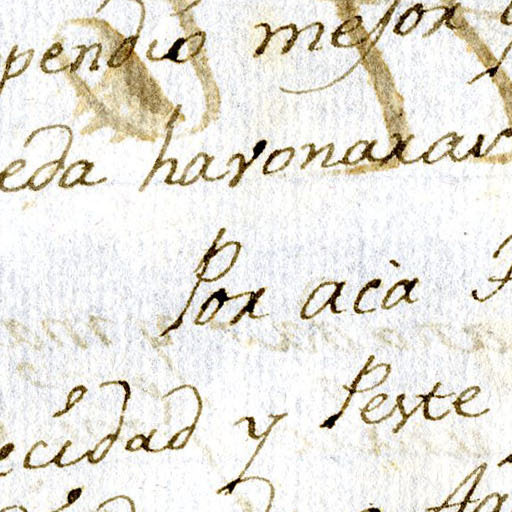 pendio mejor
eda haronarar
Por acà
ecidad y Peste